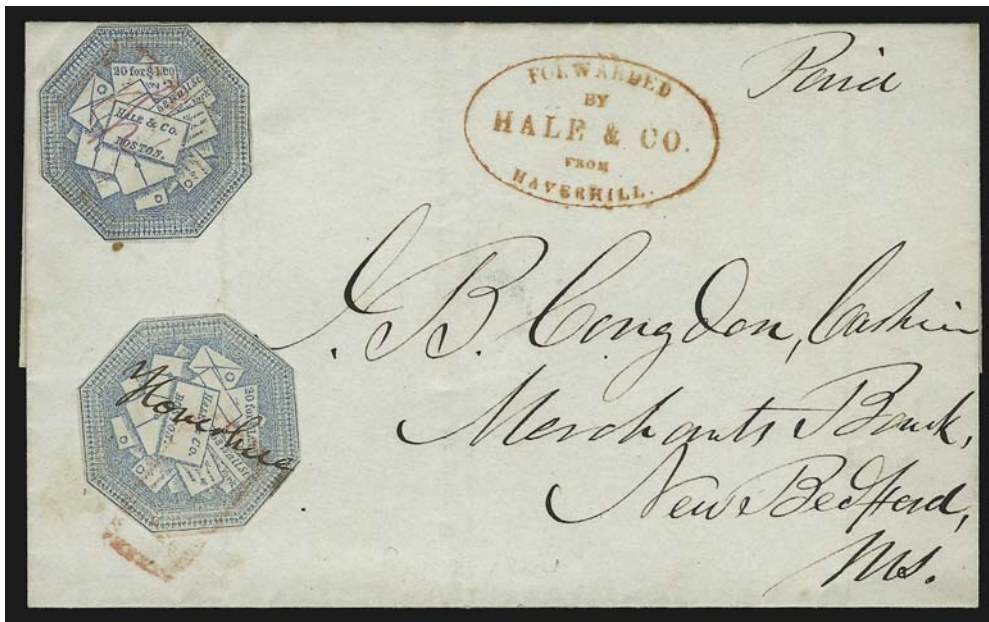 20 for $1.00
HALE & Co.
BOSTON.
FORWARDED
BY
HALE & CO.
FROM
HAVERHILL.
Paid
J. B. Congdon, Cashier
Merchants Bank,
New Bedford,
Ms.
20 for
HALE & Co.
BOSTON.